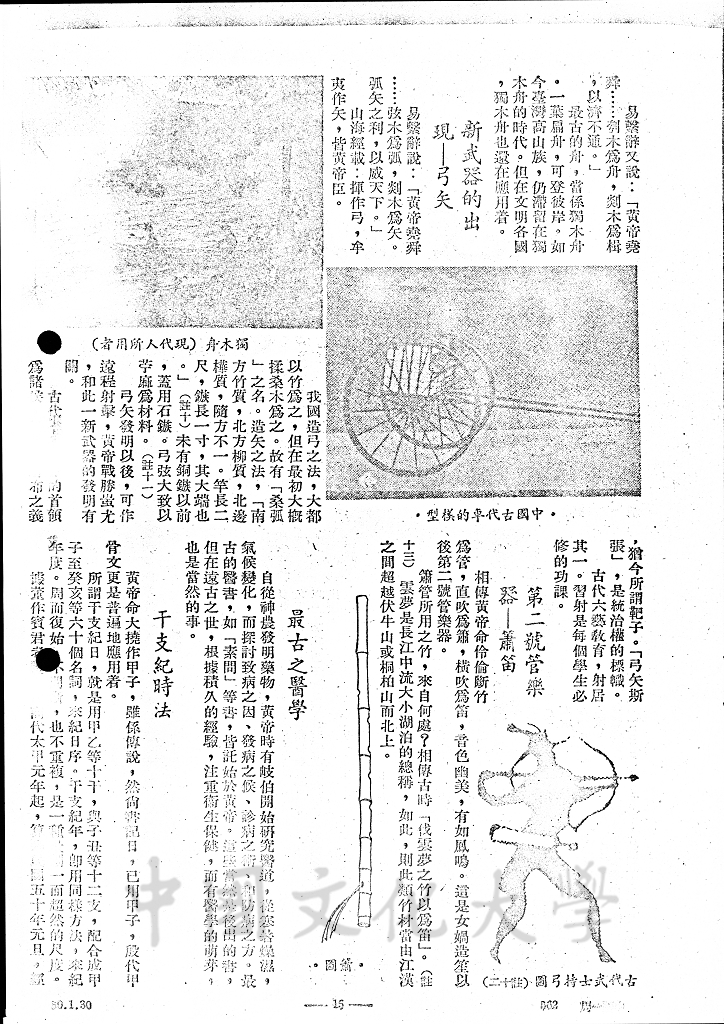 易繫辭又說：「黃帝堯
舜……刳木爲舟，剡木爲楫
，以濟不通。」
最古的舟，當係獨木舟
。一葉扁舟，可登彼岸。如
今臺灣高山族，仍滯留在獨
木舟的時代。但在文明各國
，獨木舟也還在應用着。
新武器的出
現—弓矢
易繫辭說：「黃帝堯舜
……弦木爲弧，剡木爲矢。
弧矢之利，以威天下。」
山海經載：揮作弓，牟
夷作矢，皆黃帝臣。
獨木舟（現代人所用者）
・中國古代車的模型・
我國造弓之法，大都
以竹爲之，但在最初大概
揉桑木爲之。故有「桑弧
」之名。造矢之法，「南
方竹質，北方柳質，北邊
樺質，隨方不一。竿長二
尺，鏃長一寸，其大端也
。」（註十）未有銅鏃以前
，蓋用石鏃。弓弦大致以
苧麻爲材料。（註十一）
弓矢發明以後，可作
遠程射擊，黃帝戰勝蚩尤
，和此一新武器的發明有
關。
古代 的首領
爲諸 之義
，猶今所謂靶子。「弓矢斯
張」，是統治權的標幟。
古代六藝敎育，射居
其一。習射是每個學生必
修的功課。
第二號管樂
器—簫笛
相傳黃帝命伶倫斷竹
爲管，直吹爲簫，橫吹爲笛，音色幽美，有如鳳鳴。這是女媧造笙以
後第二號管樂器。
簫管所用之竹，來自何處？相傳古時「伐雲夢之竹以爲笛」。（註
十三）雲夢是長江中流大小湖泊的總稱，如此，則此類竹材當由江漢
之間超越伏牛山或桐柏山而北上。
古代武士持弓圖（註十二）
・簫圖・
最古之醫學
自從神農發明藥物，黃帝時有岐伯開始研究醫道，從寒暑燥濕，
氣候變化，而探討致病之因、發病之候、診病之術、和防病之方。最
古的醫書，如「素問」等書，皆託始於黃帝。這些當然是後出的書，
但在遠古之世，根據積久的經驗，注重衞生保健，而有醫學的萌芽，
也是當然的事。
干支紀時法
黃帝命大撓作甲子，雖係傳說，然尙書記日，已用甲子，殷代甲
骨文更是普遍地應用着。
所謂干支紀日，就是用甲乙等十干，與子丑等十二支，配合成甲
子至癸亥等六十個名詞，來紀日序。干支紀年，卽用同樣方法，來紀
年度。周而復始 ，也不重複，是一種 一面超然的尺度。
據董作賓君 代太甲元年起，算 五十年元旦，經
中國文化大學
80.1.30
—15—
002